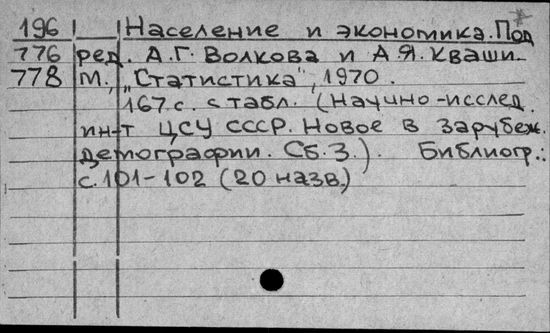 196 Население и экономика. Под
776 ред. А.Г. Волкова и А.Я. Кваши.
778 М., „Статистика", 1970.
167 с. с табл. (Научно-исслед.
ин-т ЦСУ СССР. Новое в зарубеж.
демографии. Сб. 3.). Библиогр.:
с. 101-102 (20 назв.)